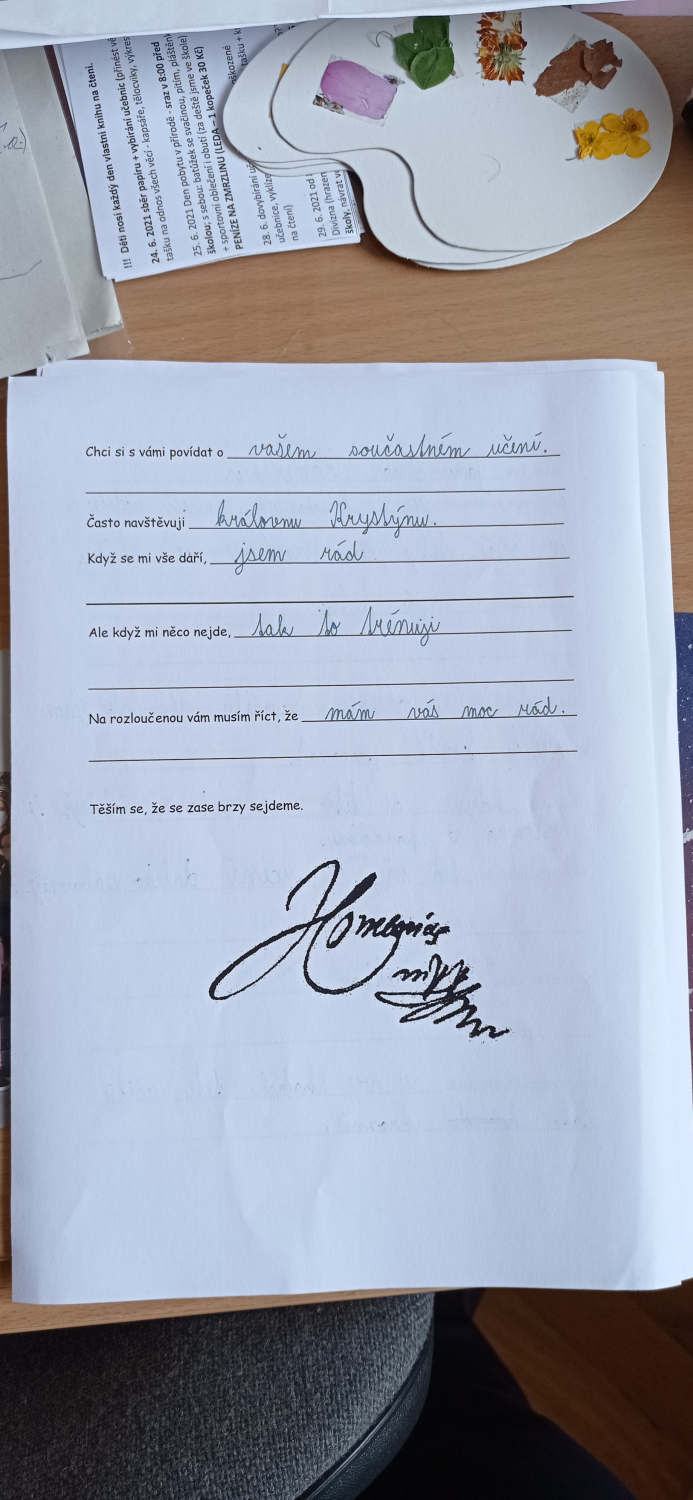 !!! Děti nosí každý den vlastní knihu na čtení.
24. 6. 2021 sběr papíru + vybírání učebnic (přinést
tašku na odnos všech věcí - kapsáře, tělocviky,
25. 6. 2021 Den pobytu v přírodě - sraz v 8:00 před
školou; s sebou: batůžek se svačinou, pitím,
+ sportovní oblečení i obutí (za deště jsme ve škole)
PENÍZE NA ZMRZLINU (LEDA – 1 kopeček 30 Kč)
28. 6. dovybírání
učebnice,
na čtení)
29. 6. 2021 od
Divizna (hrazen
školy, návrat
Chci si s vámi povídat o vašem součastném učení.
Často navštěvuji královnu Krystýnu.
Když se mi vše daří, jsem rád
Ale když mi něco nejde, tak to trénuji
Na rozloučenou vám musím říct, že mám vás moc rád.
Těším se, že se zase brzy sejdeme.